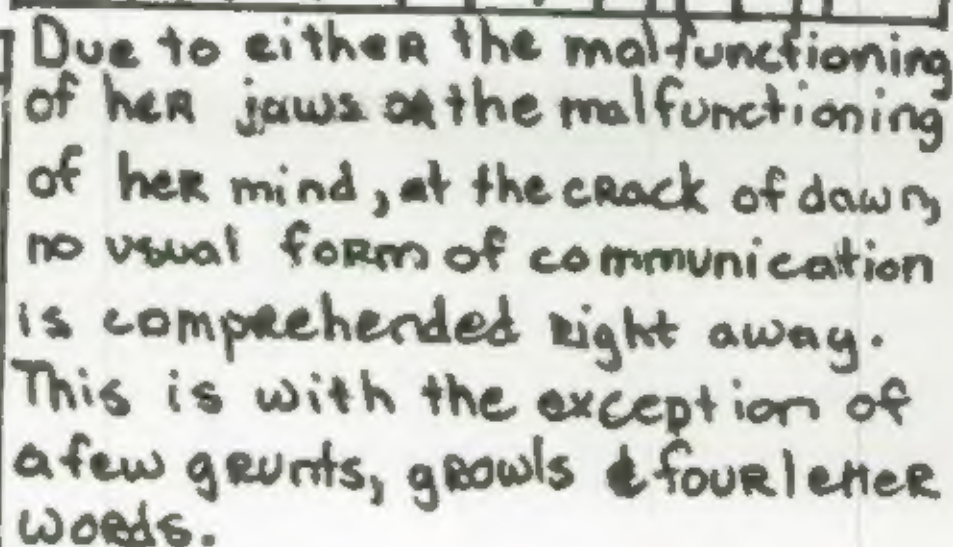 Due to either the malfunctioning
of her jaws or the malfunctioning
of her mind, at the crack of dawn,
no usual form of communication
is comprehended right away.
This is with the exception of
a few grunts, growls & four letter
words.